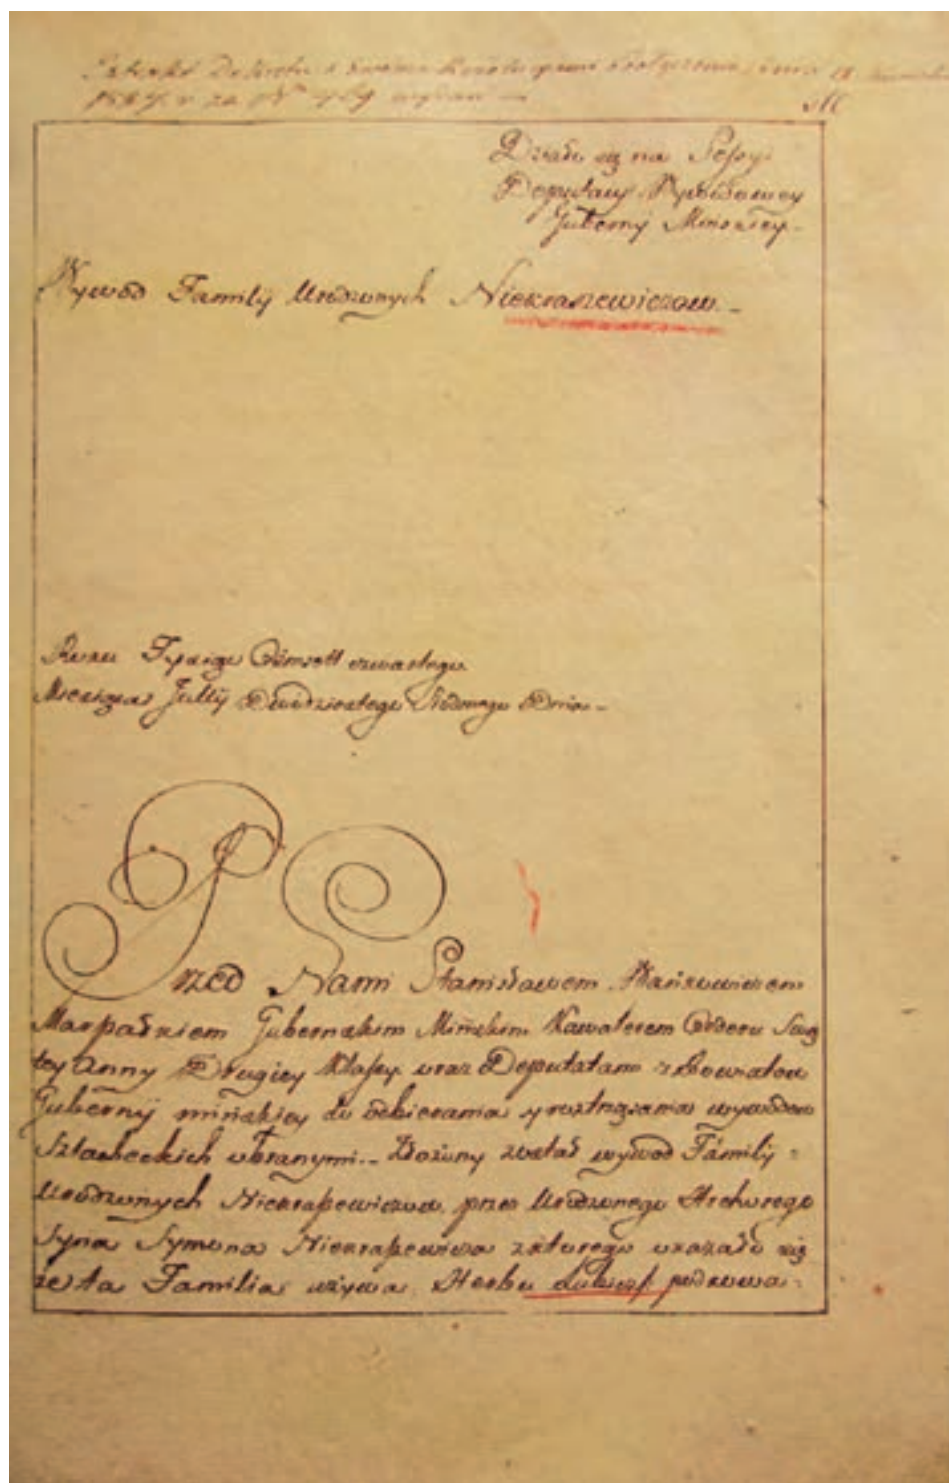 Działo się na Sessyi
Deputacyi Wywodowey
Gubernij Minskiey
Wywod Familij Urodzonych Niekraszewiczow
Roku Tysiąc Osmsett czwartego
Miesiąca Jullij Dwudziestego Siodmego Dnia
Przed Nami Stanisławem
Marszałkiem Gubernskim Minskim Kawalerem Orderu Swię
tey Anny Drugiey Klassy oraz Deputatami z Powiatow
Gubernij minskiey do odbierania y roztrząsania wywodow
Szlacheckich obranymi. Złożony został wywod Familij
Urodzonych Niekraszewiczow przez Urodzonego
Syna Symona Niekraszewicza z ktorego okazało się
że ta Familia używa Herbu